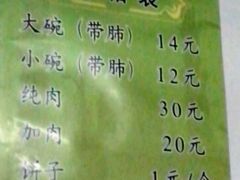 大碗（带肺） 14元
小碗（带肺） 12元
纯肉 30元
加肉 20元
饼子 1元/个